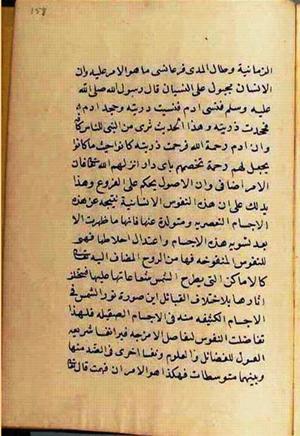 ١٥٨
الزمانية وطال المدى فرعا نسى ما هو الامر عليه وان
الانسان مجبول على النسيان قال رسول الله صلى الله
عليه وسلم فنسى ادم فنسيت ذريته وجحد ادم
فجحدت ذريته وهذا الحديث نرى من النبى
وان ادم رحمه الله فرحمت ذريته كانوا حيث ما كانوا
يجعل لهم رحمة تخصهم باى دار انزلهم الله فكان
الامر اضافى وان الاصول يحكم على الفروع وهذا
يدلك على ان هذه النفوس الانسانية نتيجة عن هذه
الاجسام العنصرية ومتولدة عنها فانها ما ظهرت الا
بعد تسوية هذه الاجسام واعتدال اخلاطها فهى
للنفوس المنفوخة فيها من الروح المضاف اليه
كالاماكن التى يطرح الشمس شعاعاتها عليها فتختلف
اثارها باختلاف القبائل اين صورة نور الشمس فى
الاجسام الكثيفة منه فى الاجسام الصقيلة فلهذا
تفاضلت النفوس لتفاضل الامزجة فيرى نفسا سريعة
القبول للفضائل والعلوم ونفسا اخرى فى الضد منها
وبينهما متوسطات فهكذا هو الامر ان فهمت قال